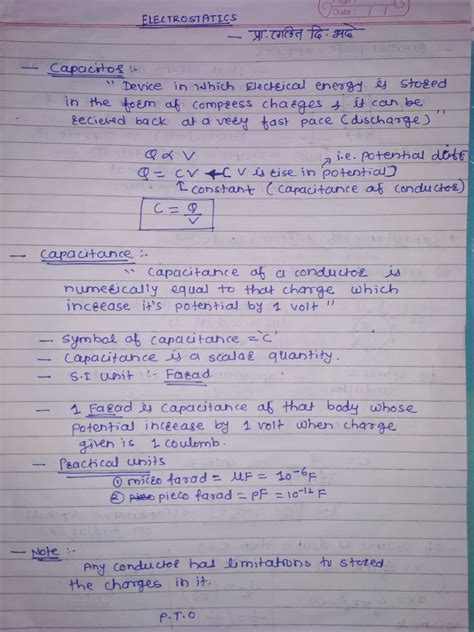 Date:
ELECTROSTATICS
— प्रा. ललित दि. भदे
— Capacitor :-
" Device in which Electrical energy is stored
in the form of compress charges & it can be
recieved back at a very fast pace (discharge) "
Q ∝ V
Q = CV ← ( V is rise in potential) → i.e. potential diff
↳ constant ( Capacitance of conductor)
C = Q/V
— Capacitance :-
" Capacitance of a conductor is
numerically equal to that charge which
increase it's potential by 1 volt "
— Symbol of capacitance = 'C'
— Capacitance is a scalar quantity.
— S.I unit :- Farad.
— 1 Farad is capacitance of that body whose
potential increase by 1 volt when charge
given is 1 coulomb.
— Practical units
① micro farad = μF = 10⁻⁶F
② pieco farad = PF = 10⁻¹² F
— Note :-
Any conductor has limitations to stored
the charges in it.
P.T.O